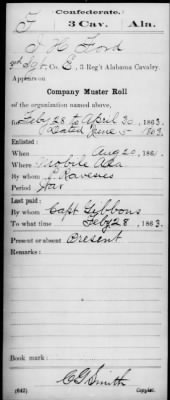 Confederate.
F 3 Cav. Ala.
J H Ford
2nd Sgt, Co. E, 3 Reg't Alabama Cavalry.
Appears on
Company Muster Roll
of the organization named above,
for Feby 28 to April 30, 1863.
Dated June 5 1863.
Enlisted:
When Aug 20, 186
Where Mobile Ala
By whom Ravesies
Period War
Last paid:
By whom Capt Gibbons
To what time Feby 28, 1863.
Present or absent Present
Remarks:
Book mark:
(642) C G Smith
Copyist.